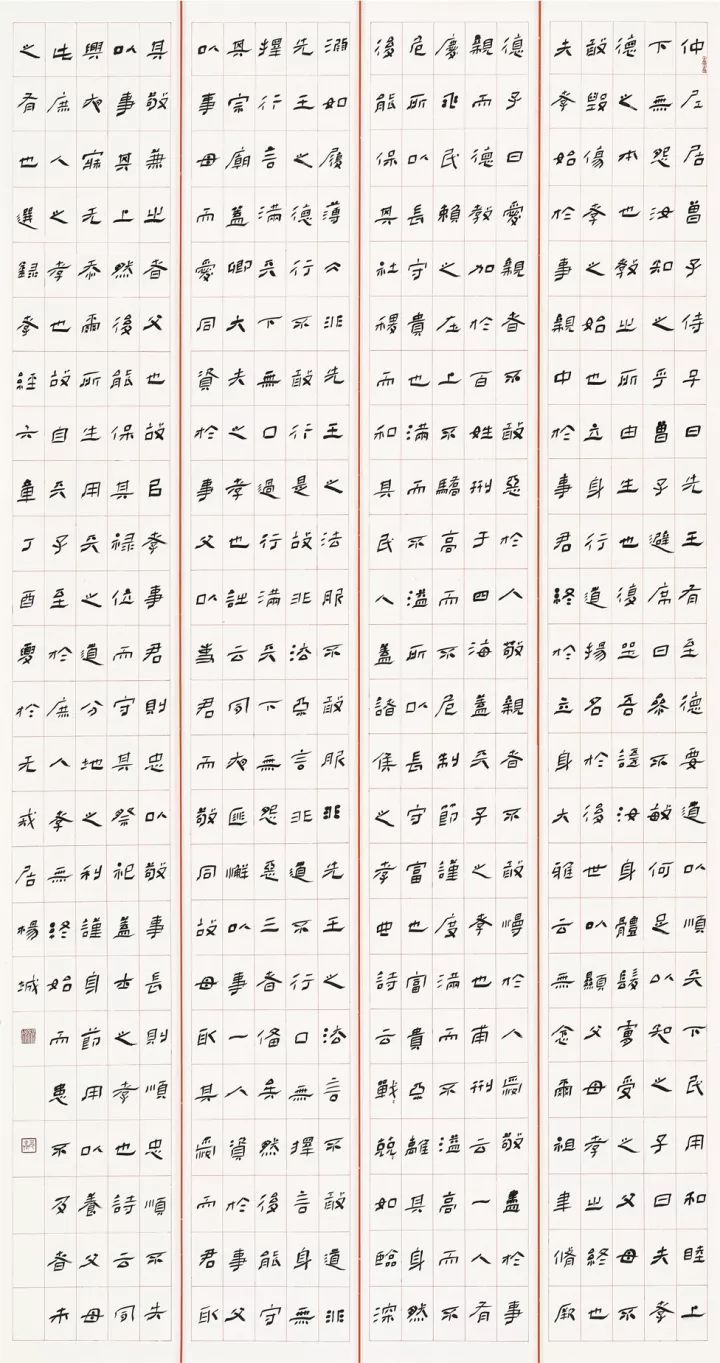 仲尼居曾子侍子曰先王有至德要道以順天下民用和睦上
下無怨汝知之乎曾子避席曰參不敏何足以知之子曰夫孝
德之本也教之所由生也復坐吾語汝身體髮膚受之父母不
敢毀傷孝之始也立身行道揚名於後世以顯父母孝之終也
夫孝始於事親中於事君終於立身大雅云無念爾祖聿脩厥
德子曰愛親者不敢惡於人敬親者不敢慢於人愛敬盡於事
親而德教加於百姓刑于四海蓋天子之孝也甫刑云一人有
慶兆民賴之在上不驕高而不危制節謹度滿而不溢高而不
危所以長守貴也滿而不溢所以長守富也富貴不離其身然
後能保其社稷而和其民人蓋諸侯之孝也詩云戰々兢々如臨深
淵如履薄冰非先王之法服不敢服非先王之法言不敢道非
先王之德行不敢行是故非法不言非道不行口無擇言身無
擇行言滿天下無口過行滿天下無怨惡三者備矣然後能守
其宗廟蓋卿大夫之孝也詩云夙夜匪懈以事一人資於事父
以事母而愛同資於事父以事君而敬同故母取其愛而君取
其敬兼之者父也故以孝事君則忠以敬事長則順忠順不失
以事其上然後能保其祿位而守其祭祀蓋士之孝也詩云夙
興夜寐无忝爾所生用天之道分地之利謹身節用以養父母
此庶人之孝也故自天子至於庶人孝無終始而患不及者未
之有也選録孝經六章丁酉夏於无戒居楊城